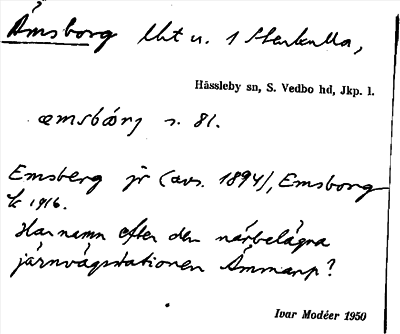 Åmsborg lht u. 1 Starkulla,
Hässleby sn, S. Vedbo hd, Jkp. l.
æmsbårj s. 81.
Emsberg jr (avs. 1894), Emsborg
k 1916.
Har namn efter den närbelägna
järnvägsstationen Ämmarp?
Ivar Modéer 1950